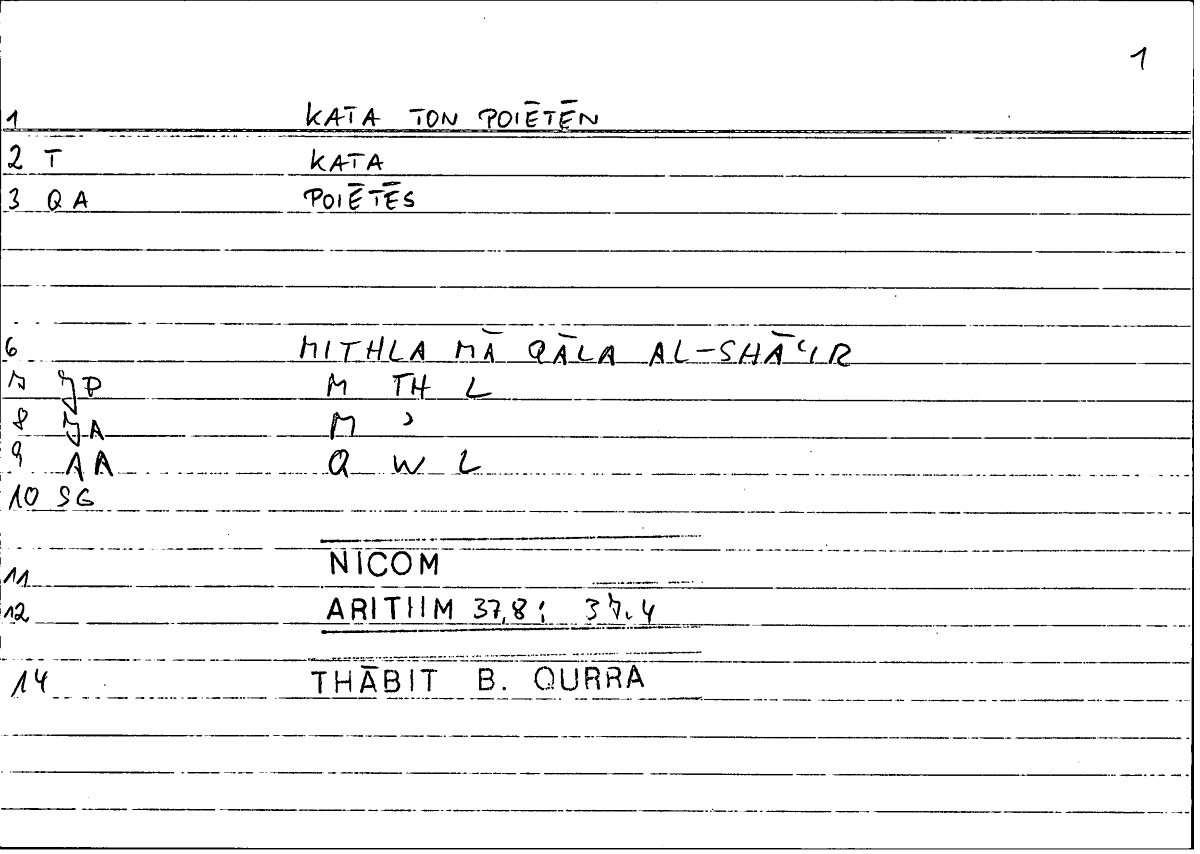 1
1 KATA TON POIĒTĒN
2 T KATA
3 QA POIĒTĒS
6 MITHLA MĀ QĀLA AL-SHĀʿIR
7 JP M TH L
8 JA M ʾ
9 AA Q W L
10 SG
11 NICOM
12 ARITHM 37,8; 37.4
14 THĀBIT B. QURRA